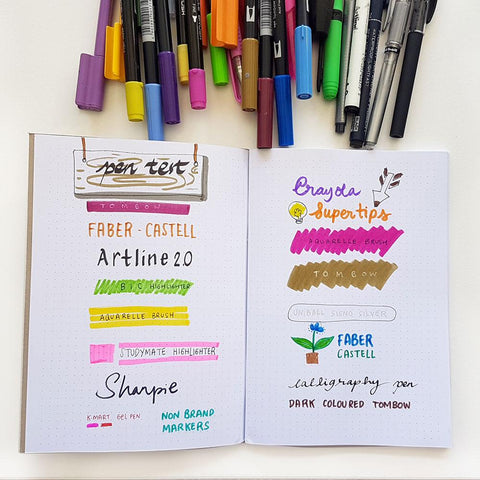 pen test
TOMBOW
FABER-CASTELL
Artline 2.0
BIC HIGHLIGHTER
AQUARELLE BRUSH
STUDYMATE HIGHLIGHTER
Sharpie
K-MART GEL PEN
NON BRAND
MARKERS
Crayola
Supertips
AQUARELLE BRUSH
TOMBOW
UNIBALL SIGNO SILVER
FABER
CASTELL
calligraphy pen
DARK COLOURED TOMBOW